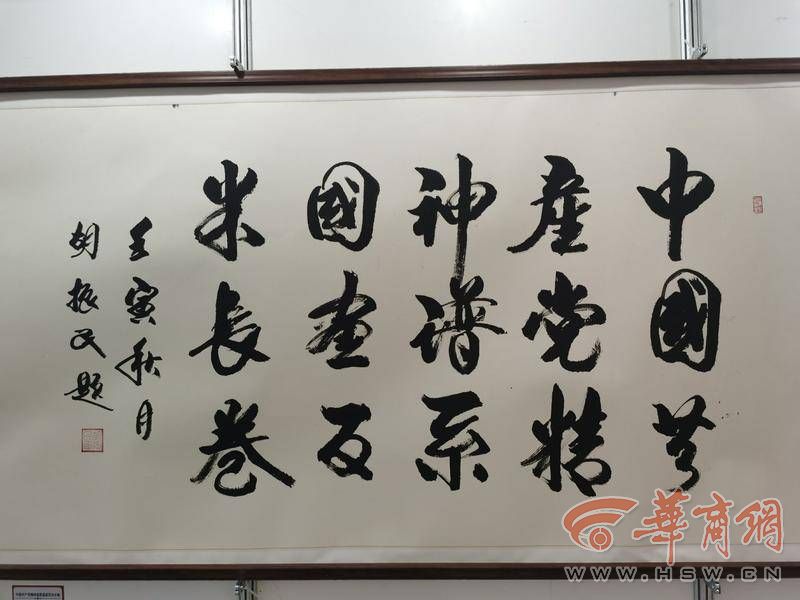 中國共
産党精
神谱系
國画百
米長卷
壬寅秋月
胡振民題
華商網
WWW.HSW.CN